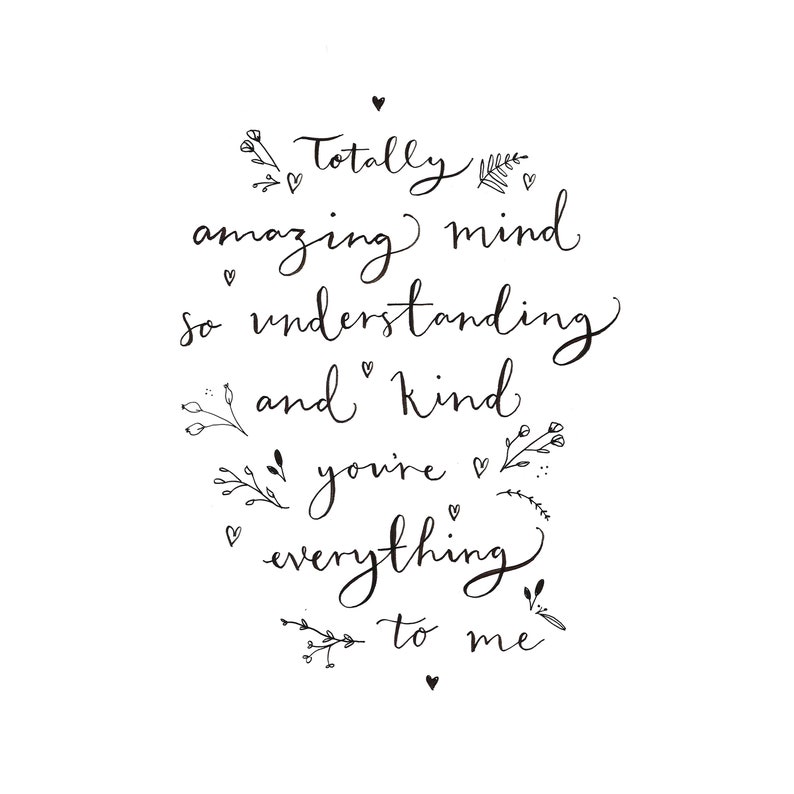 Totally
amazing mind
so understanding
and kind
you're
everything
to me